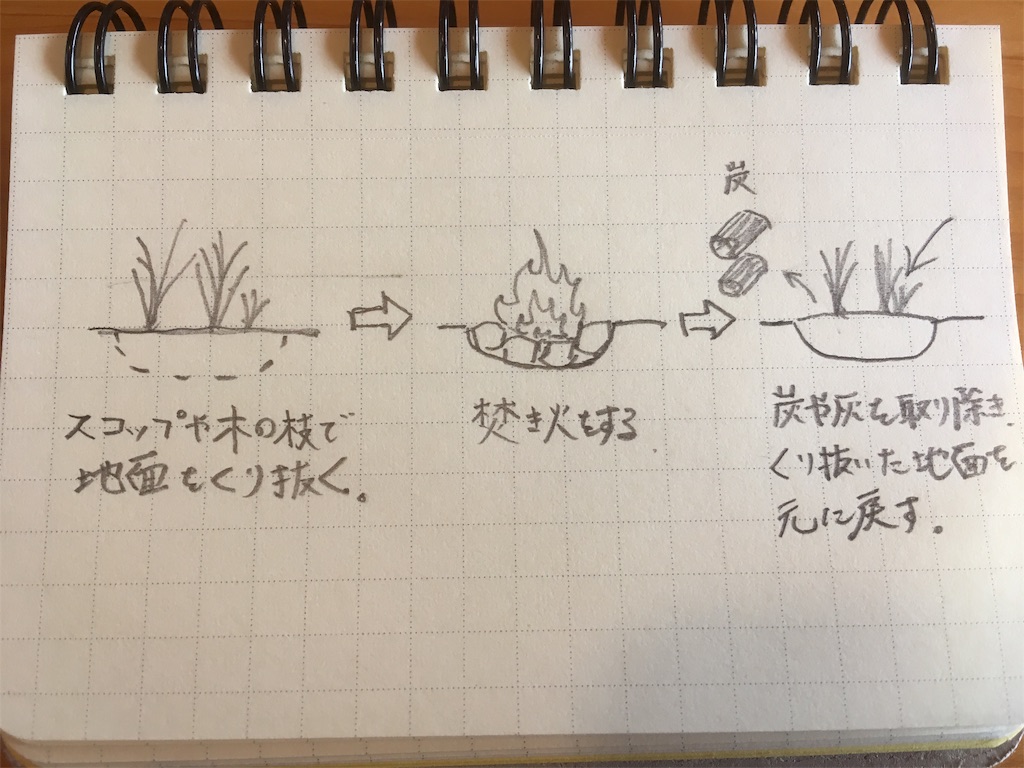 炭
スコップや木の枝で
地面をくり抜く。
焚き火をする
炭や灰を取り除き
くり抜いた地面を
元に戻す。